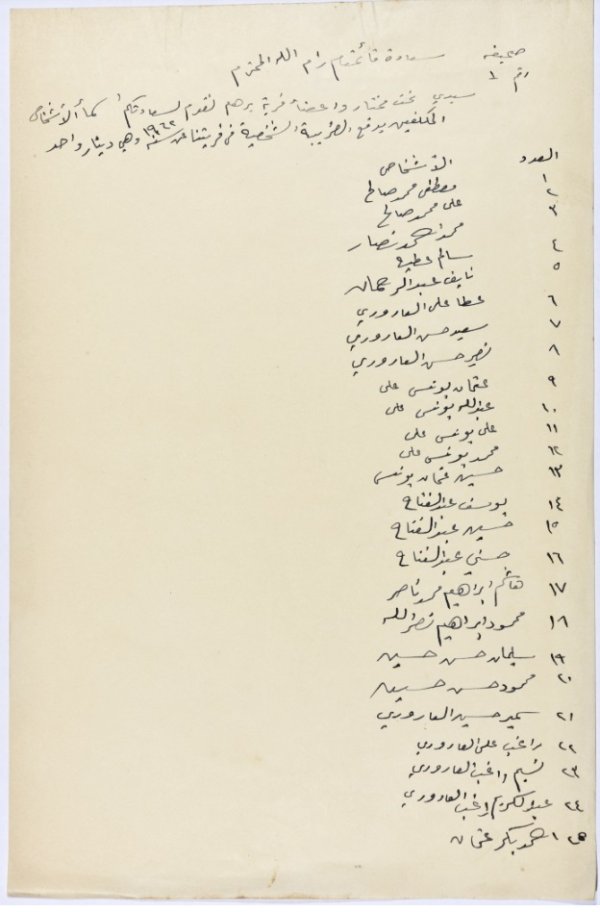 صحيفه
رقم ١
سعادة قائمقام رام الله المحترم
سيدي نحن مختار واعضاء قرية برهم نقدم لسعادتكم أسماء الأشخاص
المكلفين بدفع الضريبة الشخصية في قريتنا عن سنة ١٩٦٢ وهي دينار واحد
العدد الأشخاص
١ مصطفى محمد صالح
٢ على محمد صالح
٣ محمد احمد نصار
٤ سالم عطيه
٥ نايف عبد الرحمان
٦ عطا على العاروري
٧ سعيد حسن العاروري
٨ نصير حسن العاروري
٩ عثمان يونس على
١٠ عبدالله يونس على
١١ على يونس على
١٢ محمد يونس على
١٣ حسين عثمان يونس
١٤ يوسف عبد الفتاح
١٥ حسين عبد الفتاح
١٦ حسني عبد الفتاح
١٧ هاشم ابراهيم محمد ناصر
١٨ محمود ابراهيم نصرالله
١٩ سليمان حسن حسين
٢٠ محمود حسن حسين
٢١ سمير حسين العاروري
٢٢ راغب على العاروري
٢٣ نسيم راغب العاروري
٢٤ عبد الكريم راغب العاروري
٢٥ احمد بكر عثمان